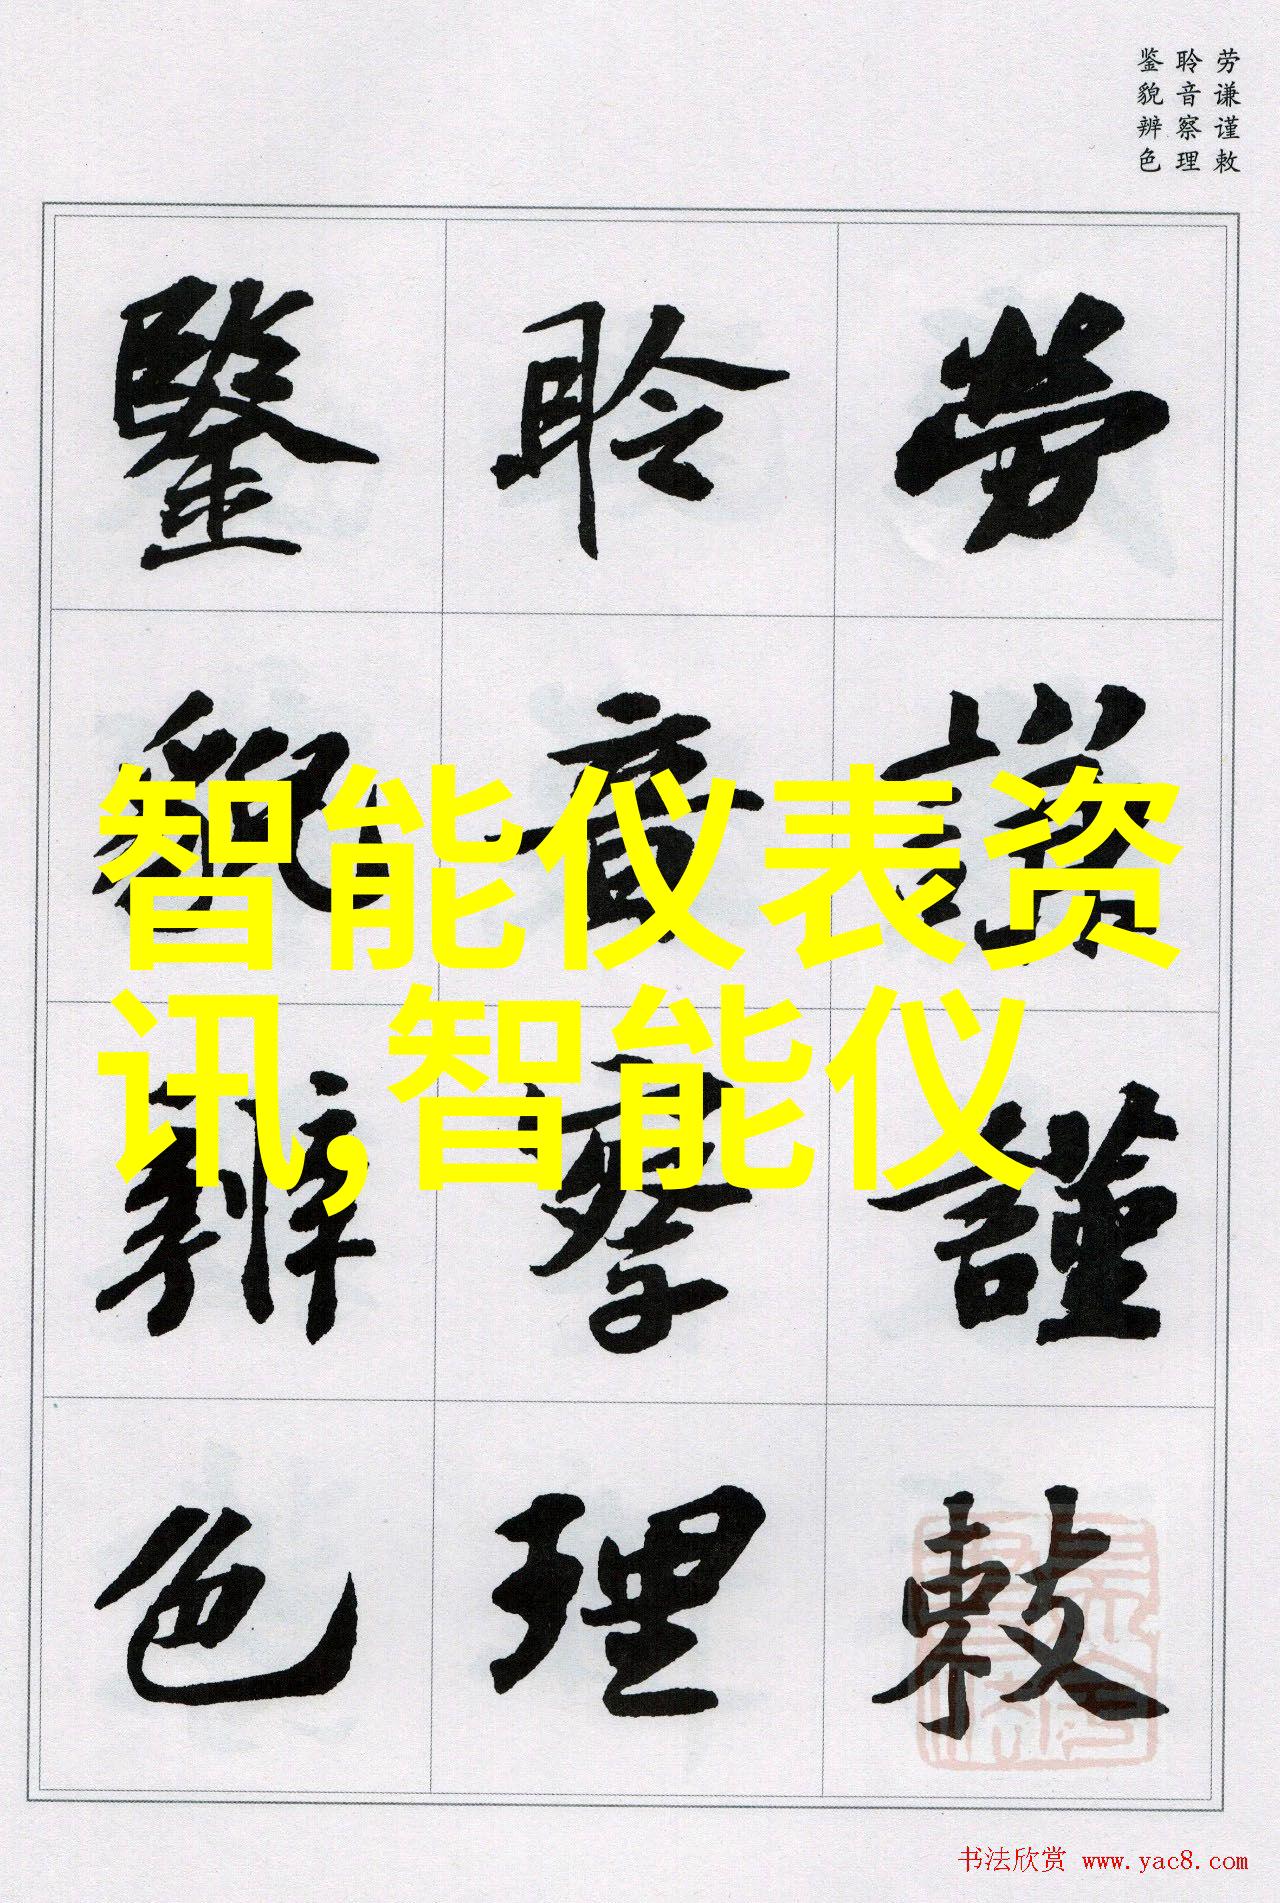 劳谦谨敕
聆音察理
鉴貌辨色
勞謙謹敕
聆音察理
鑒貌辨色
智能仪表资
讯,智能仪
书法欣赏 www.yac8.com